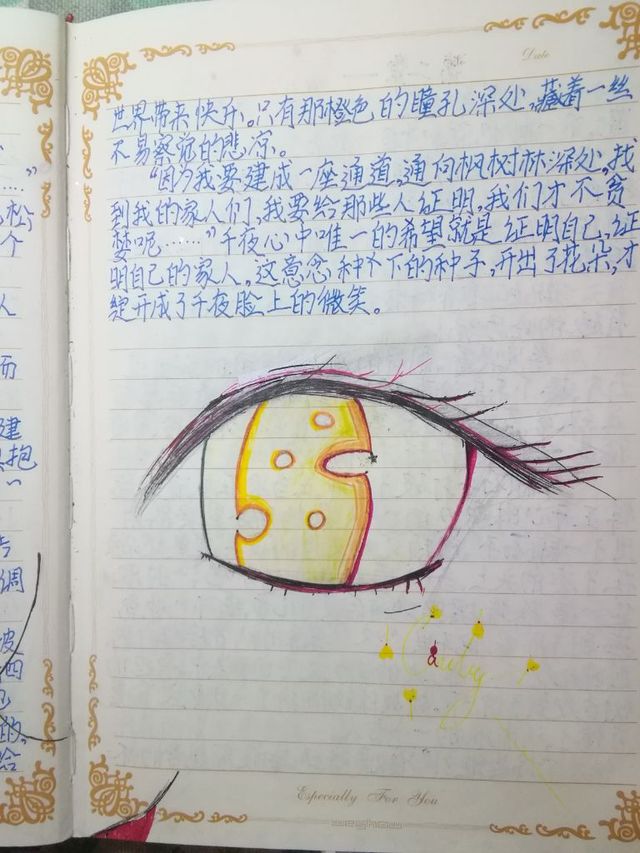 Date
世界带来快乐。只有那橙色的瞳孔深处,藏着一丝
不易察觉的悲凉。
“因为我要建成一座通道,通向枫树林深处,找
到我的家人们,我要给那些人证明,我们才不贪
婪呢……”千夜心中唯一的希望就是证明自己,证
明自己的家人。这意念种下的种子,开出了花朵,才
绽开成了千夜脸上的微笑。
Especially For You
……”
松,
个
人
而
建
抱
调
四
的,
给